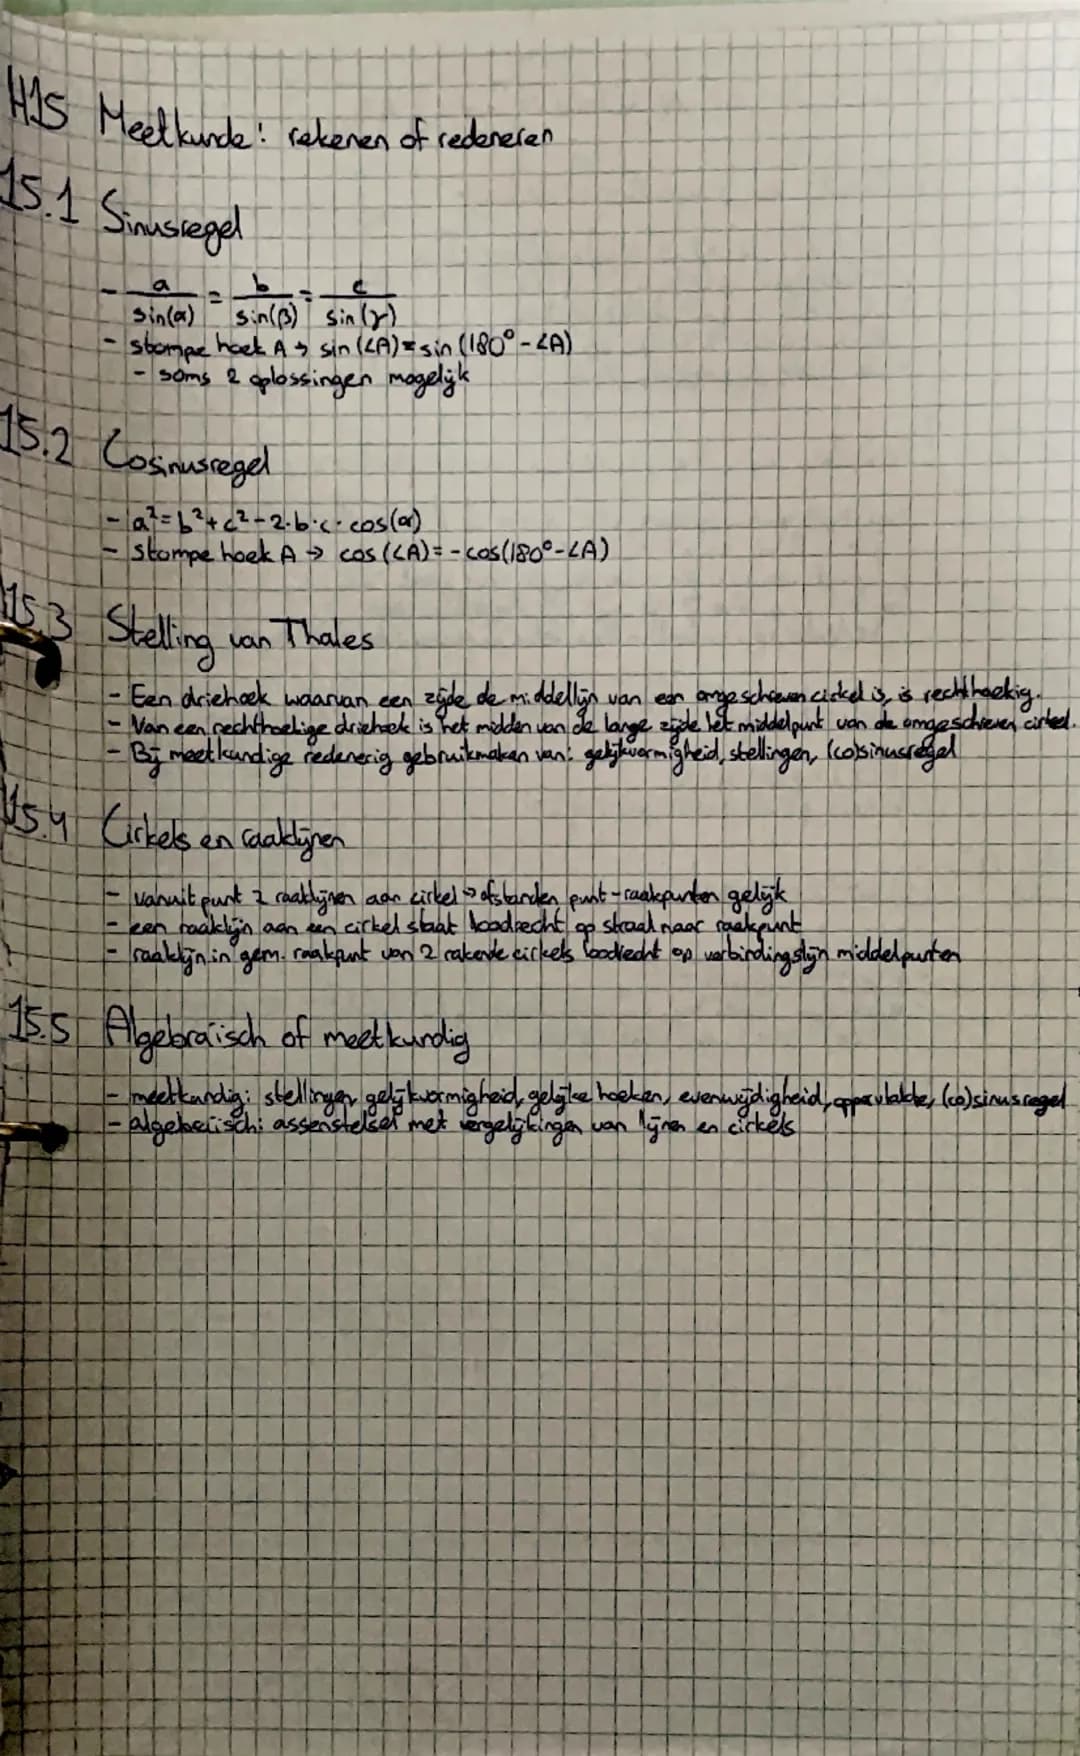 H15 Meetkunde: rekenen of redeneren
15.1 Sinusregel
- a/sin(α) = b/sin(β) = c/sin(γ)
- stompe hoek A → sin(∠A)=sin(180°-∠A)
- soms 2 oplossingen mogelijk
15.2 Cosinusregel
- a²=b²+c²-2·b·c·cos(α)
- stompe hoek A → cos(∠A)=-cos(180°-∠A)
15.3 Stelling van Thales
- Een driehoek waarvan een zijde de middellijn van een omgeschreven cirkel is, is rechthoekig.
- Van een rechthoekige driehoek is het midden van de lange zijde het middelpunt van de omgeschreven cirkel.
- Bij meetkundige redenerig gebruikmaken van: gelijkvormigheid, stellingen, (co)sinusregel
15.4 Cirkels en raaklijnen
- vanuit punt 2 raaklijnen aan cirkel → afstanden punt-raakpunten gelijk
- een raaklijn aan een cirkel staat loodrecht op straal naar raakpunt
- raaklijn in gem. raakpunt van 2 rakende cirkels loodrecht op verbindingslijn middelpunten
15.5 Algebraïsch of meetkundig
- meetkundig: stellingen, gelijkvormigheid, gelijke hoeken, evenwijdigheid, oppervlakte, (co)sinusregel
- algebraïsch: assenstelsel met vergelijkingen van lijnen en cirkels